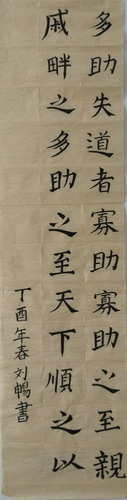 多助失道者寡助寡助之至親
戚畔之多助之至天下順之以
丁酉年春刘暢書